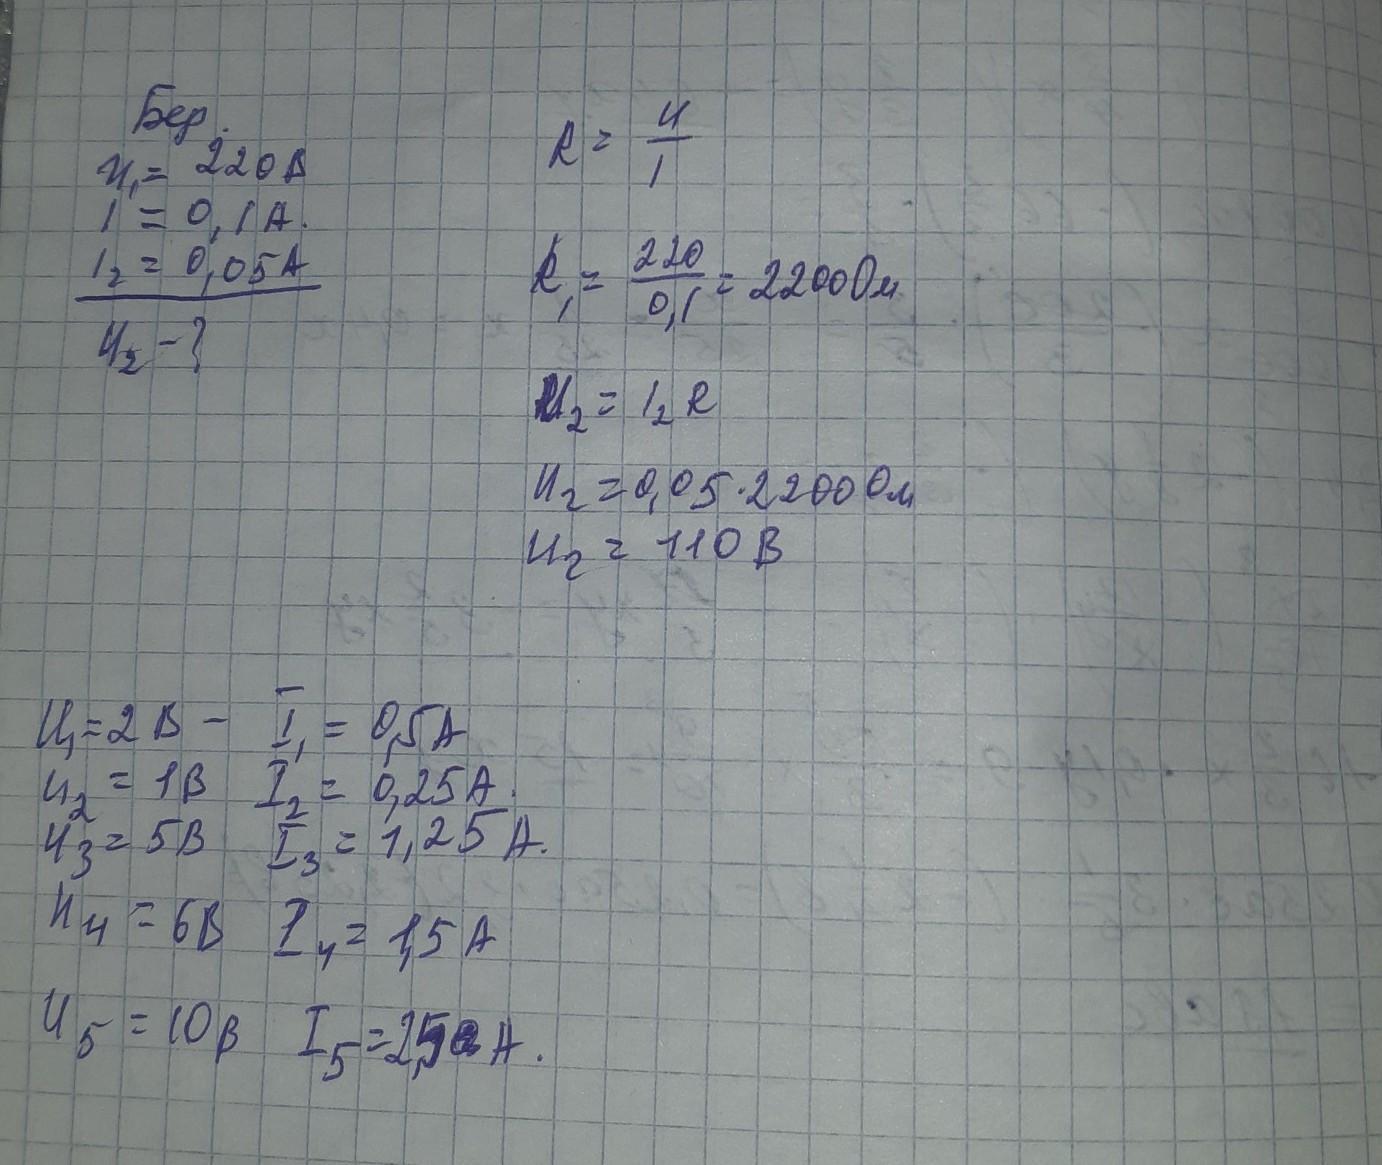 Бер.
U₁ = 220 В
I = 0,1 А.
I₂ = 0,05 А
U₂ - ?
R = U/I
R₁ = 220/0,1 = 2200 Ом
U₂ = I₂ R
U₂ = 0,05 · 2200 Ом
U₂ = 110 В
U₁ = 2 В - I₁ = 0,5 А
U₂ = 1 В I₂ = 0,25 А.
U₃ = 5 В I₃ = 1,25 А.
U₄ = 6 В I₄ = 1,5 А
U₅ = 10 В I₅ = 2,5 А.